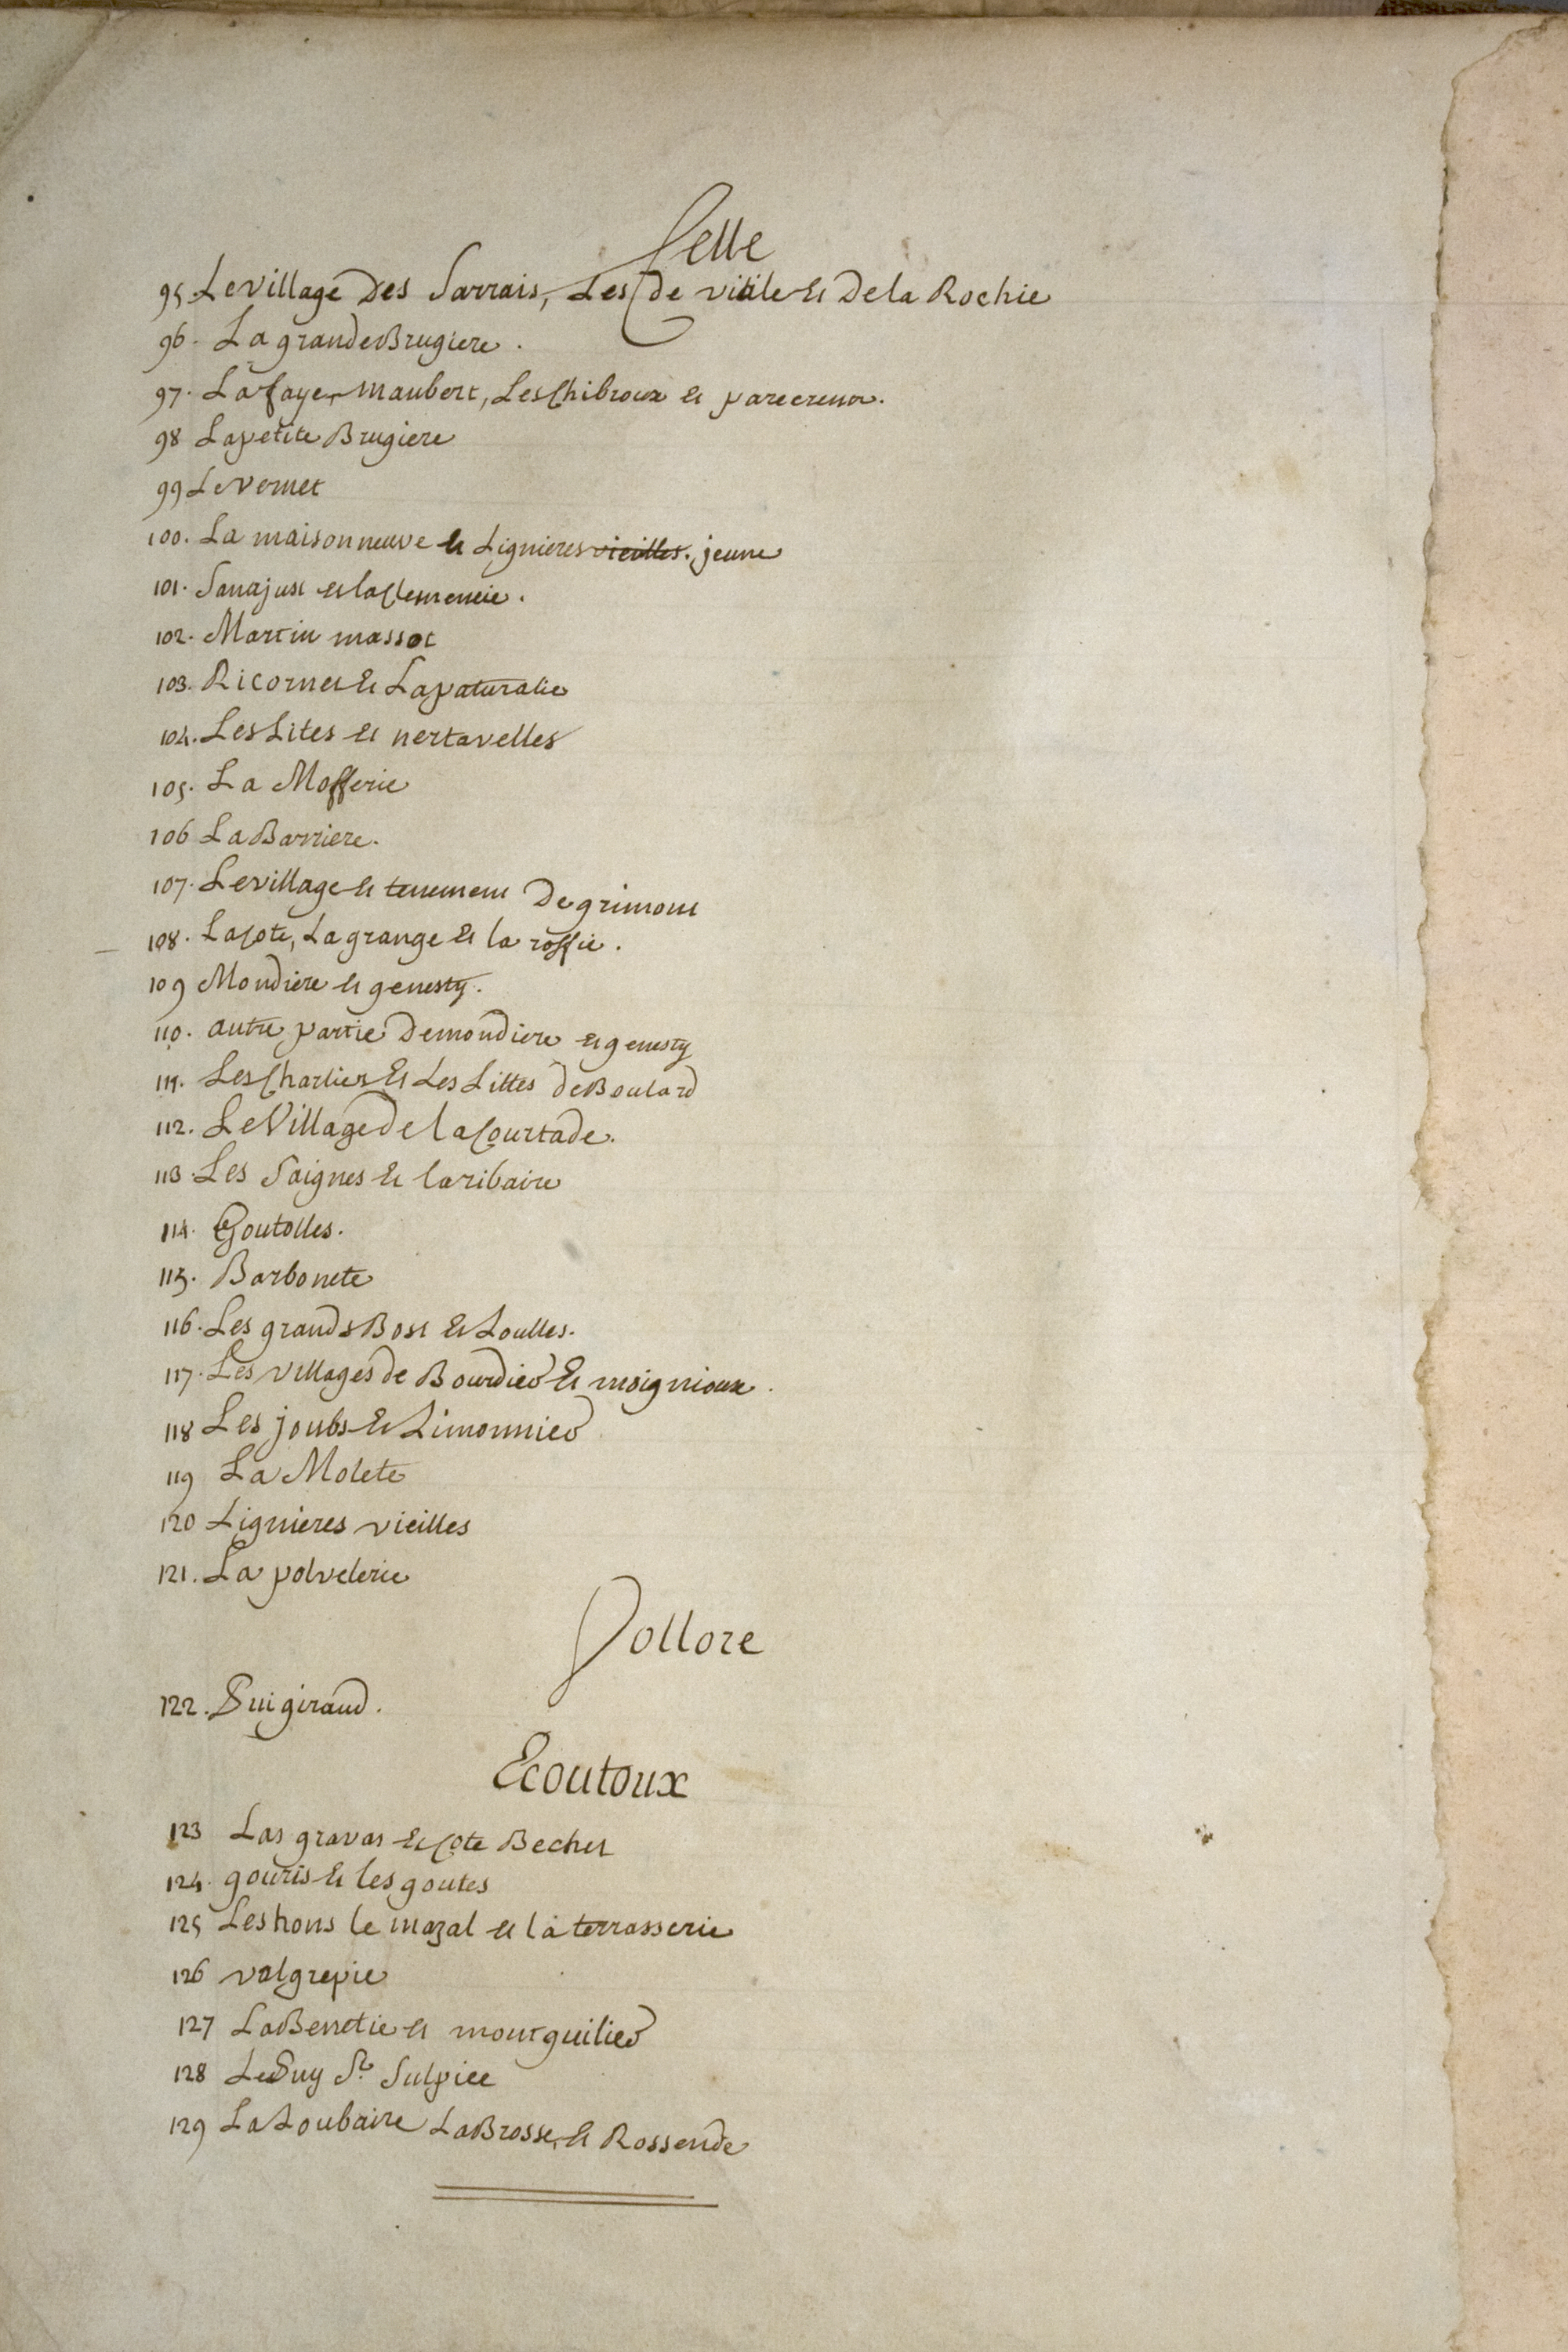 Celle
95. Le village Des Sarrais, Les de vitile et De la Rochie
96. La grande Brugiere.
97. La faye, maubert, Les Chibroux et parecreux.
98 La petite Brugiere
99 Le Vernet
100. La maison neuve et Lignieres vieilles. jeune
101. Sanajust et la Clemencie.
102. Martin massot
103. Ricornet et La paturalie
104. Les Lites et nertavelles
105. La Mosserie
106 La Barriere.
107. Le village et tenement De grimont
108. La Cote, La grange et la rossie.
109 Mondiere et genesty.
110. autre partie De mondiere et genesty
111. Les Charliers et Les Littes de Boulard
112. Le Village De la Courtade.
113. Les Saignes et la ribaire
114. Goutolles.
115. Barbonete
116. Les grands Bost et Loulles.
117. Les villages de Bourdier et moignioux.
118 Les joubs et Limonnier
119 La Molete
120 Lignieres vieilles
121. La polvelerie
Vollore
122. Puigiraud.
Ecoutoux
123 Las gravas et Cote Bechet
124. gouris et les goutes
125 Les hons le mazal et la terrasserie
126 valgrepie
127 La Bernetie et mourguilier
128 Le Puy St. Sulpice
129 La Loubaire La Brosse, et Rossende